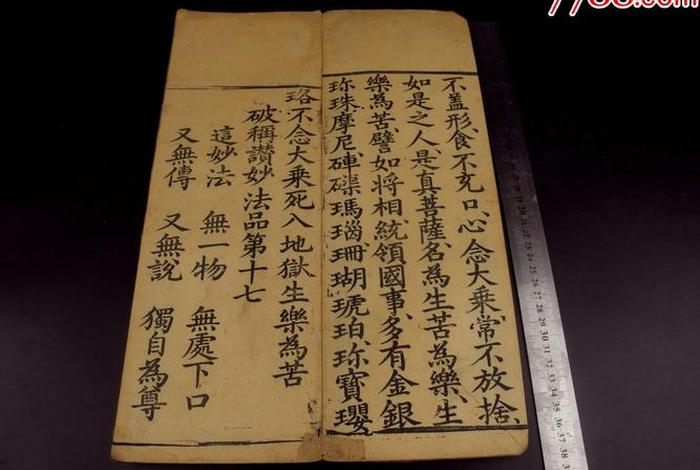 不盖形、食不充口、心念大乘常不放捨、
如是之人、是真菩薩、名為生苦為樂、生
樂為苦、譬如将相、統領國事、多有金銀
珎珠摩尼、硨磲瑪瑙、珊瑚琥珀、珎寶瓔
珞、不念大乘、死入地獄、生樂為苦
破稱讃妙法品第十七
這妙法 無一物 無處下口
又無傳 又無說 獨自為尊
7788.com